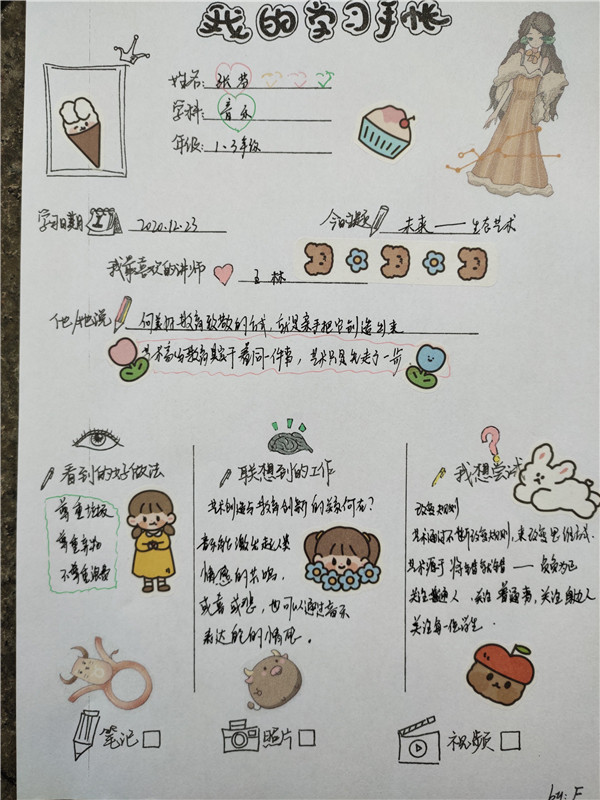 我的学习手帐
姓名：张苗
学科：音乐
年级：1-3年级
学习日期 2020.12.23
今日主题 未来——生态艺术
我最喜欢的讲师 王林
他/她说 向美好教育致敬的方式，就是亲手把它创造出来
艺术家与教育其实干着同一件事，艺术只是先走了一步
看到的好做法
尊重垃圾
尊重弃物
不等废浪费
联想到的工作
艺术创造与教育创新的关系何在？
音乐能激发起人类
情感的共鸣，
或喜或悲，也可以通过音乐
表达的情感。
我想尝试
改变规则
艺术通过不断改变规则，来改变思维方式.
艺术源于将错就错——
关注普通人，关注普通者，关注身边人
关注每一位学生.
笔记
照片
视频
by: F